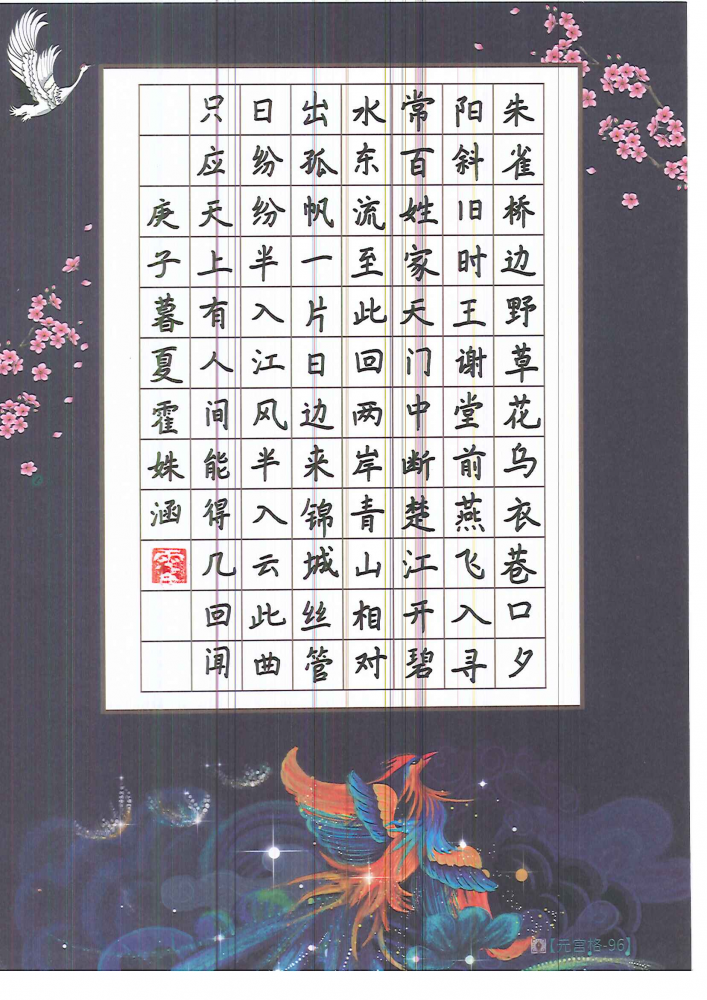 朱雀桥边野草花乌衣巷口夕
阳斜旧时王谢堂前燕飞入寻
常百姓家天门中断楚江开碧
水东流至此回两岸青山相对
出孤帆一片日边来锦城丝管
日纷纷半入江风半入云此曲
只应天上有人间能得几回闻
庚子暮夏霍姝涵
【元宫格-96】